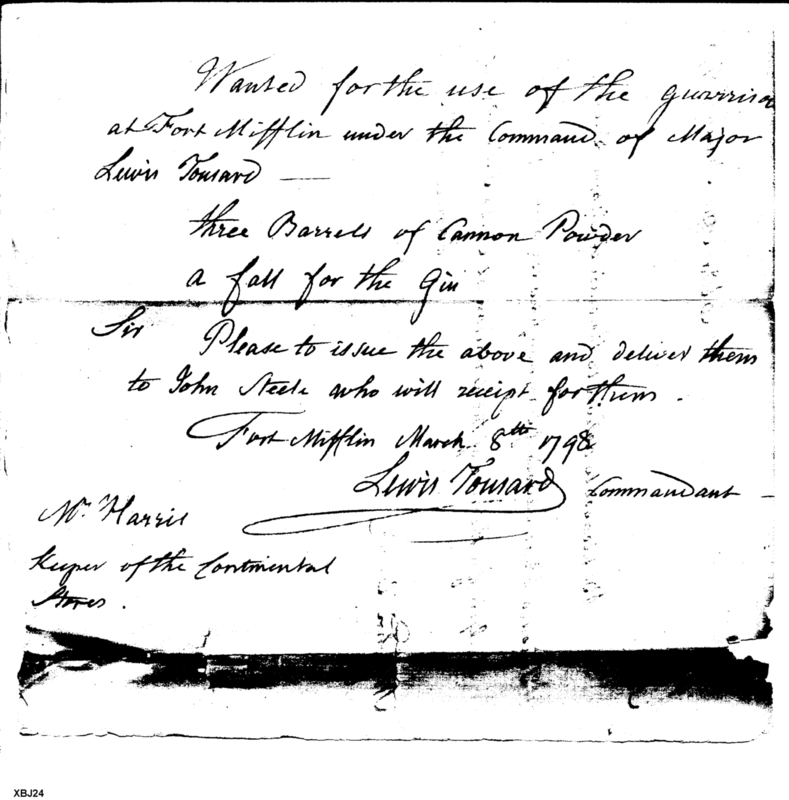 Wanted for the use of the guarrison
at Fort Mifflin under the Command of Major
Lewis Tousard —
three Barrels of Cannon Powder
a fall for the Gin
Sir Please to issue the above and deliver them
to John Steele who will receipt for them.
Fort Mifflin March 8th 1798
Lewis Tousard Commandant —
Mr. Harris
Keeper of the Continental
Stores.
XBJ24